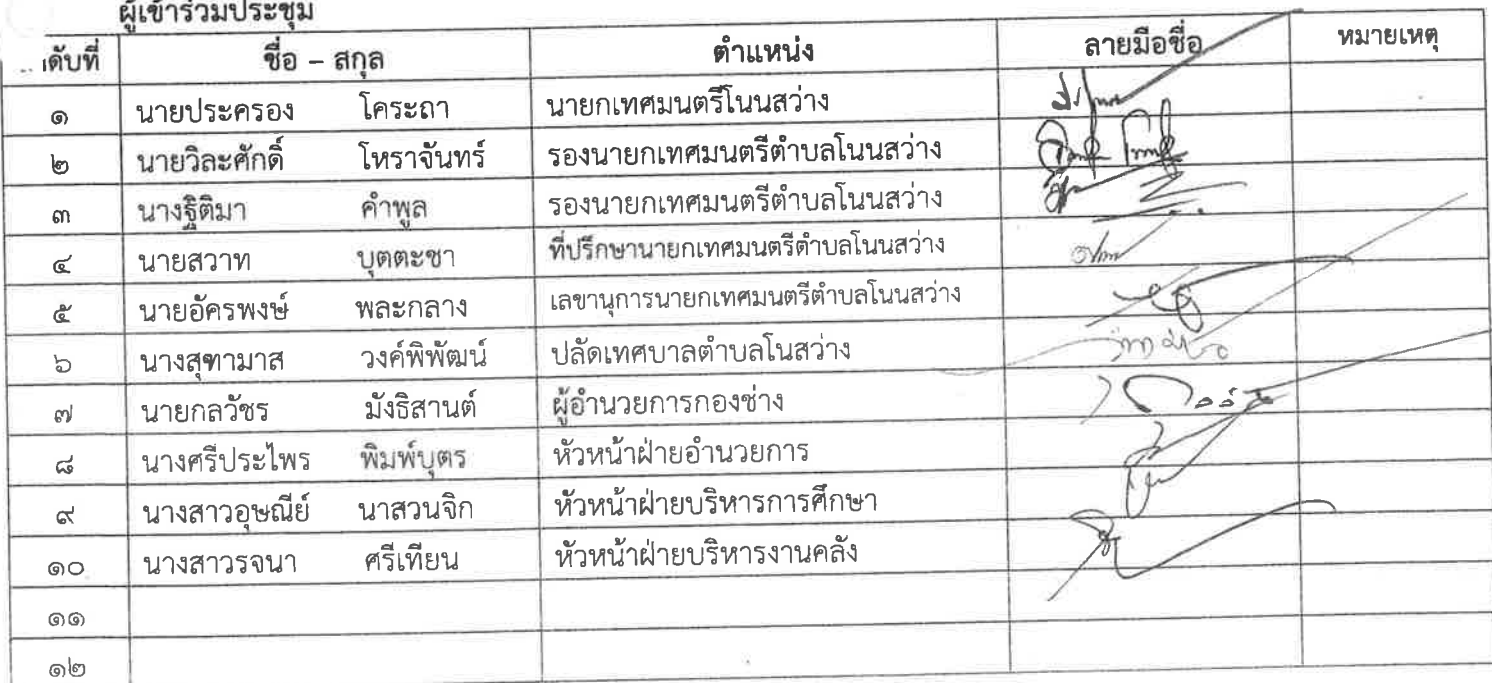 ผู้เข้าร่วมประชุม
ดับที่ ชื่อ – สกุล ตำแหน่ง ลายมือชื่อ หมายเหตุ
๑ นายประครอง โคระถา นายกเทศมนตรีโนนสว่าง
๒ นายวิละศักดิ์ โหราจันทร์ รองนายกเทศมนตรีตำบลโนนสว่าง
๓ นางฐิติมา คำพูล รองนายกเทศมนตรีตำบลโนนสว่าง
๔ นายสวาท บุตตะชา ที่ปรึกษานายกเทศมนตรีตำบลโนนสว่าง
๕ นายอัครพงษ์ พละกลาง เลขานุการนายกเทศมนตรีตำบลโนนสว่าง
๖ นางสุฑามาส วงค์พิพัฒน์ ปลัดเทศบาลตำบลโนสว่าง
๗ นายกลวัชร มังธิสานต์ ผู้อำนวยการกองช่าง
๘ นางศรีประไพร พิมพ์บุตร หัวหน้าฝ่ายอำนวยการ
๙ นางสาวอุษณีย์ นาสวนจิก หัวหน้าฝ่ายบริหารการศึกษา
๑๐ นางสาวรจนา ศรีเทียน หัวหน้าฝ่ายบริหารงานคลัง
๑๑
๑๒